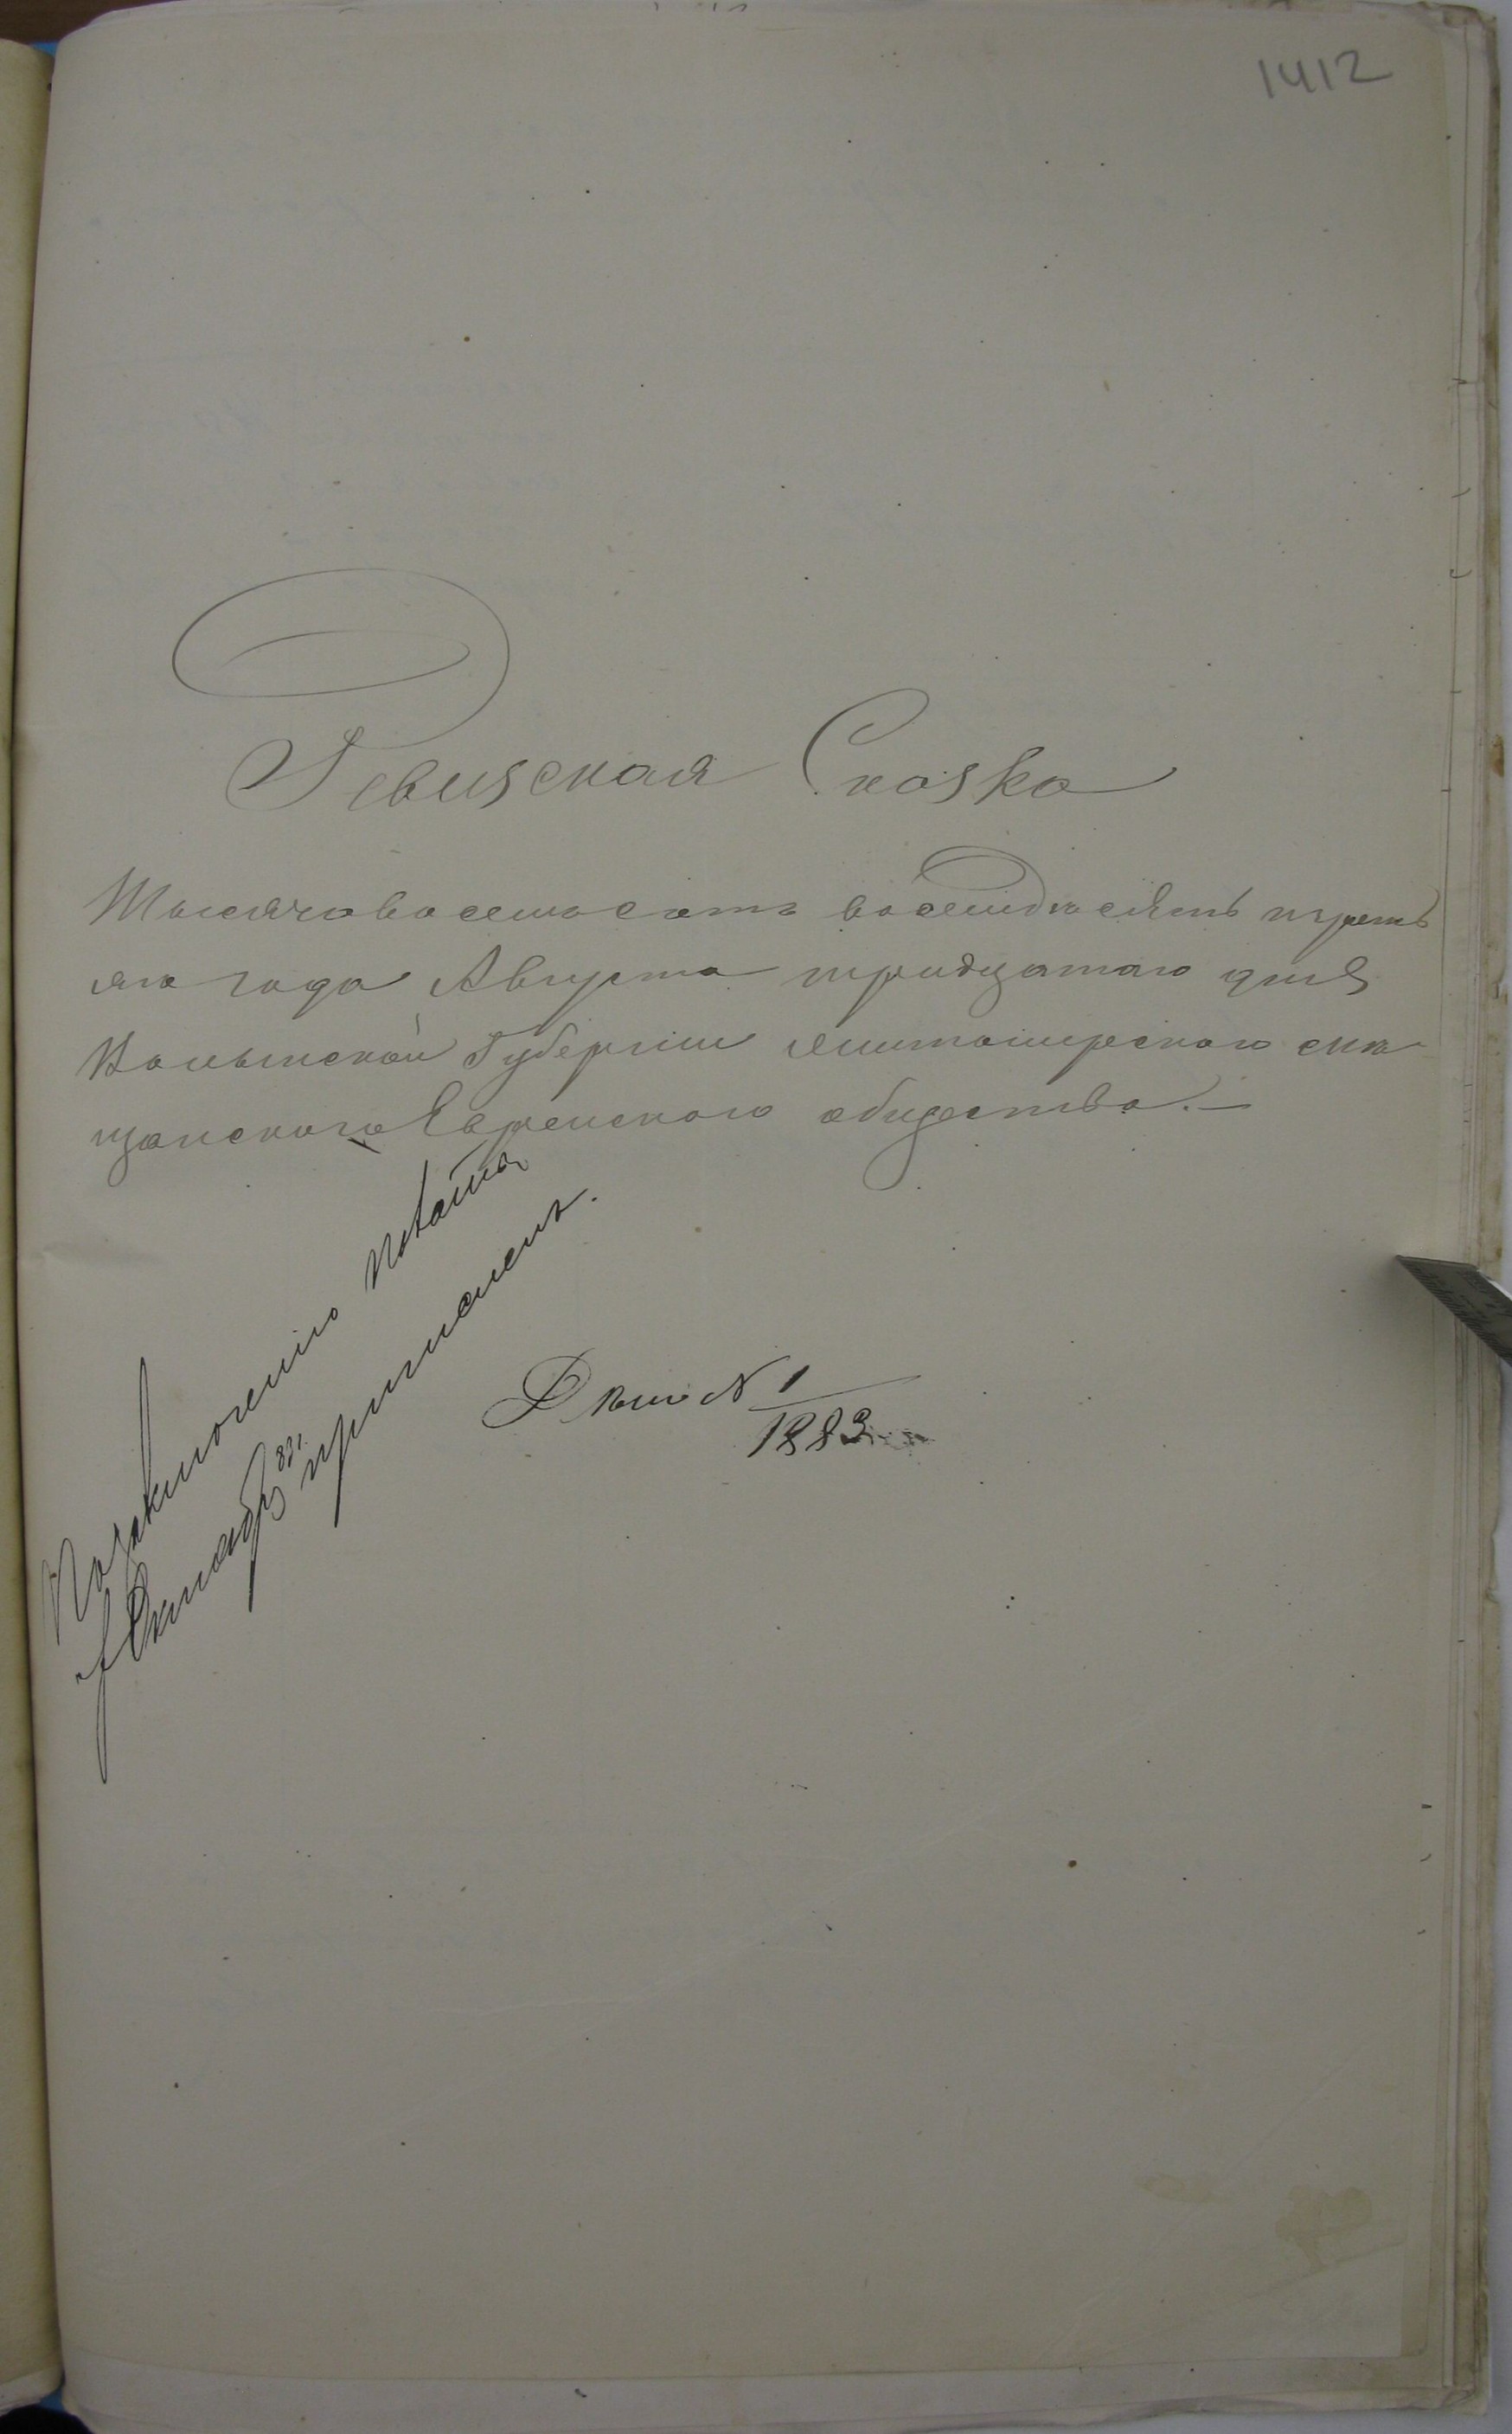 1412
Ревизская Сказка
Тысяча восемьсотъ восемдесятъ треть
яго года Августа тридцатаго дня
Волынской Губерніи Житомирскаго мѣ
щанскаго Еврейскаго общества.—
По заключенію Палаты
Октября 83 г. причисленъ.
Дѣло № 1
1883